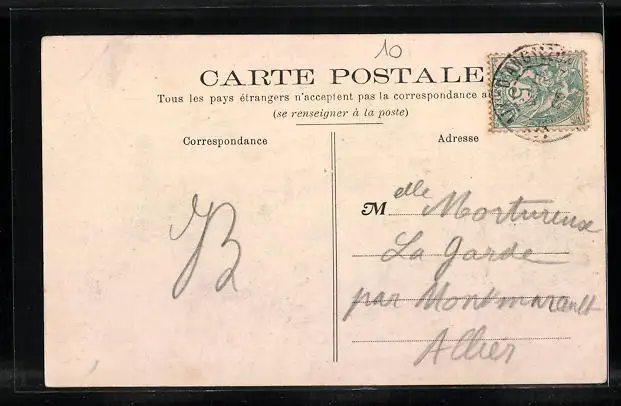 10
CARTE POSTALE
Tous les pays étrangers n'acceptent pas la correspondance au
(se renseigner à la poste)
Correspondance
Adresse
JB
Melle Mortureux
La Garde
par Montmarault
Allier